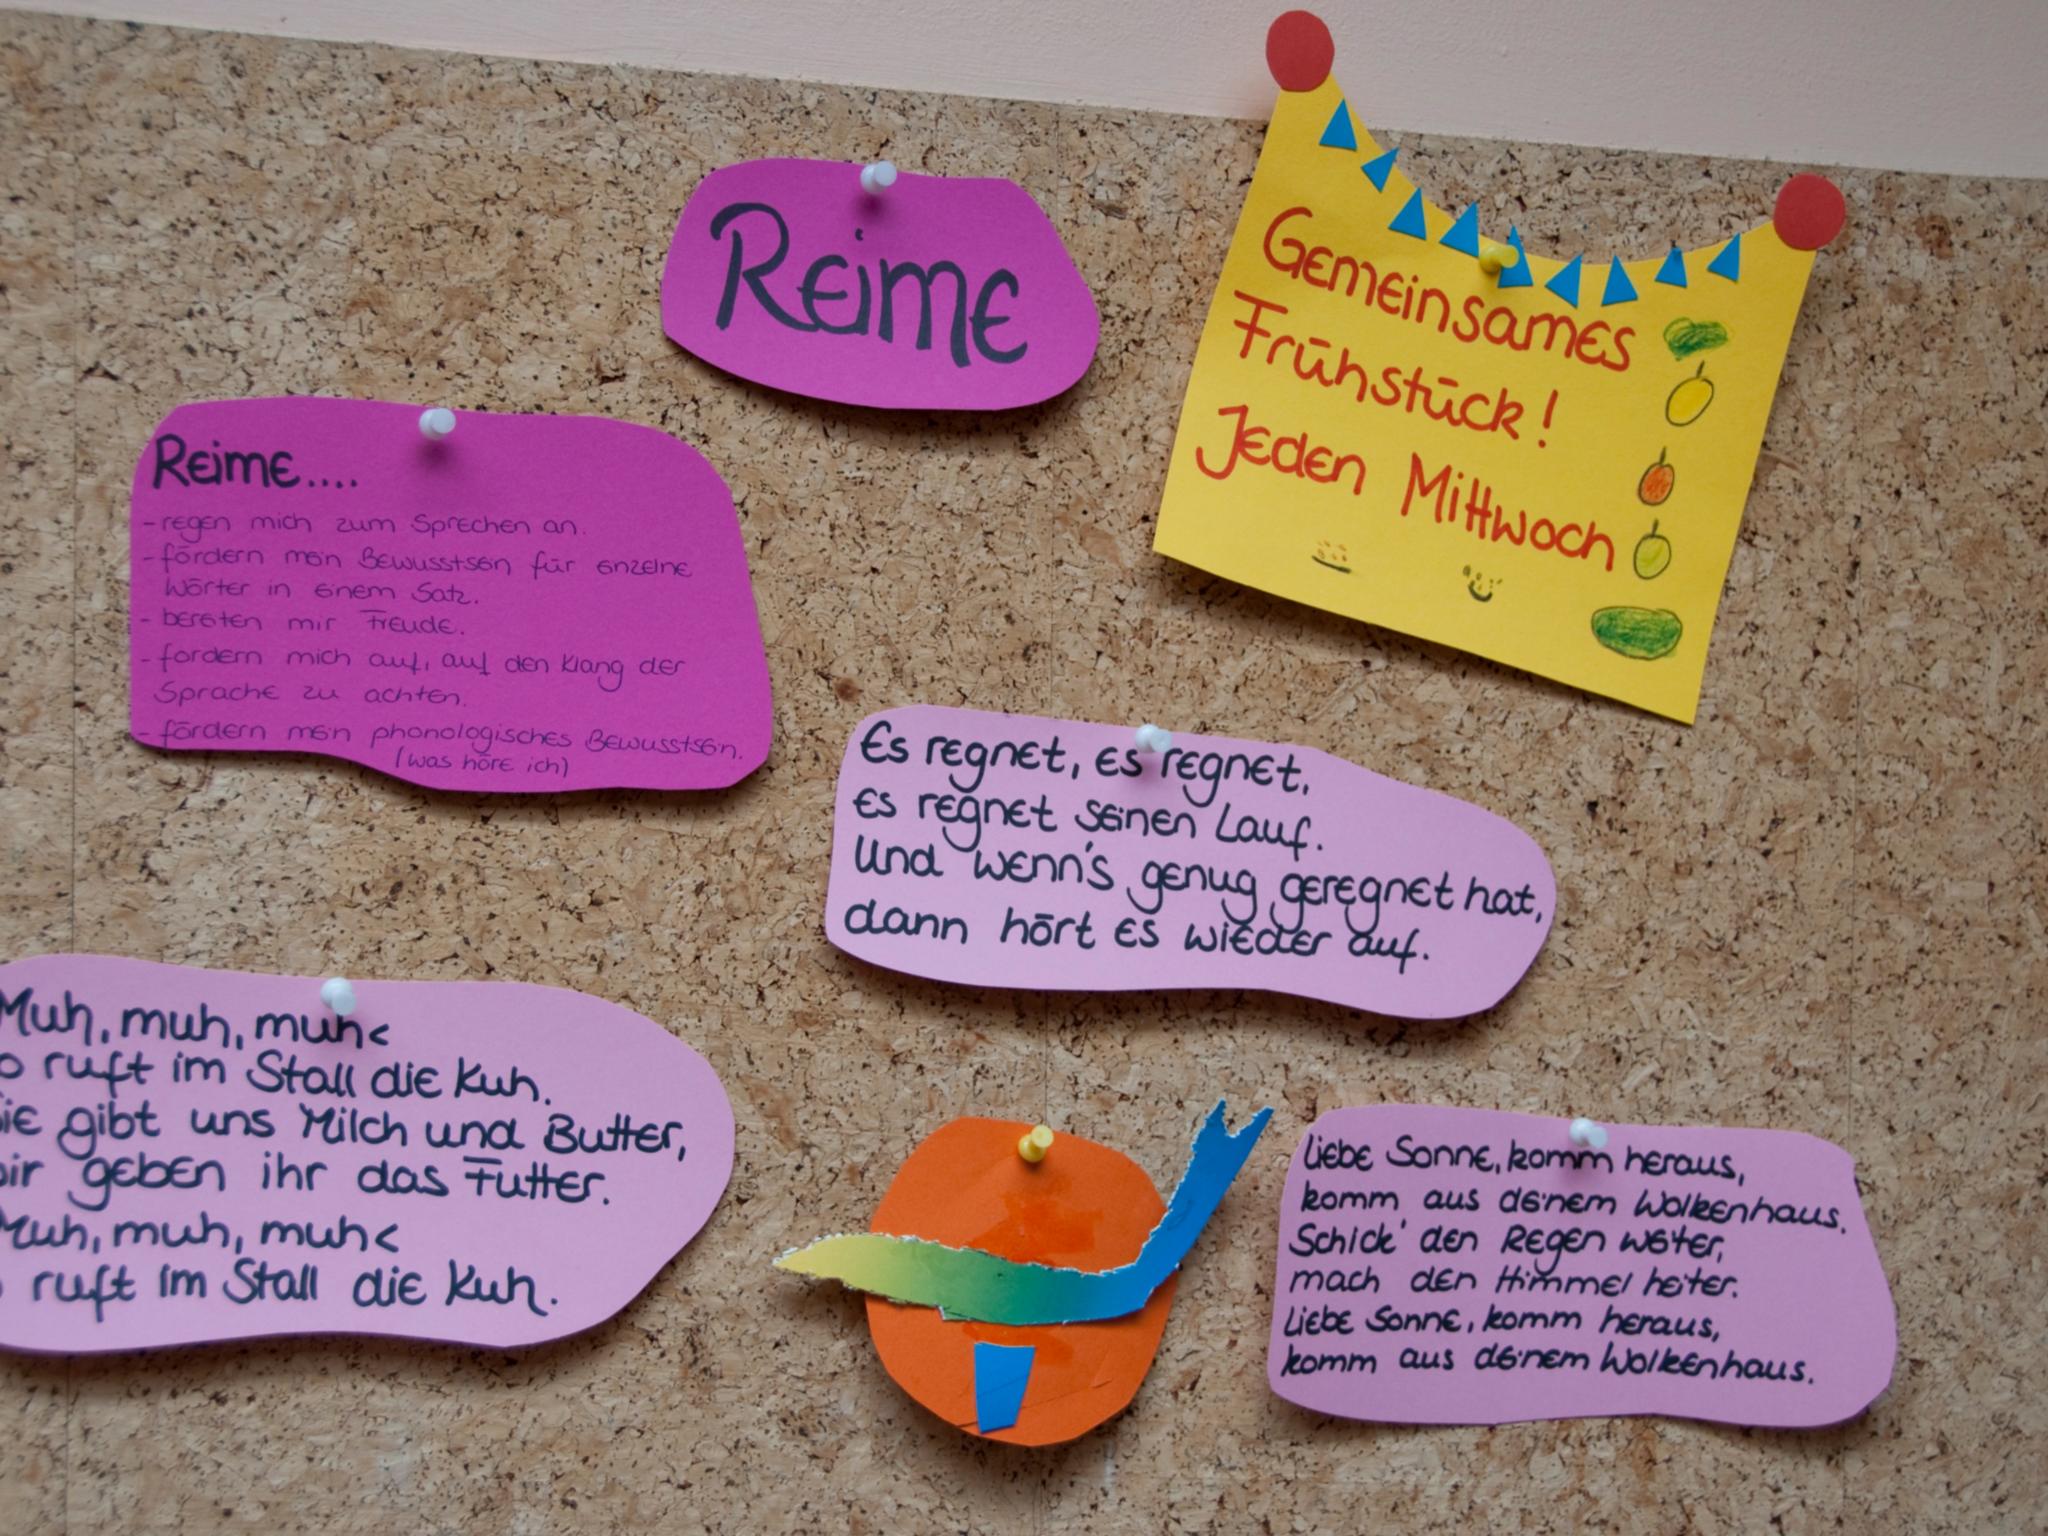 Reime
Gemeinsames
Frühstück!
Jeden Mittwoch
Reime....
- regen mich zum Sprechen an.
- fördern mein Bewusstsein für einzelne
Wörter in einem Satz.
- bereiten mir Freude.
- fordern mich auf, auf den Klang der
Sprache zu achten.
- fördern mein phonologisches Bewusstsein.
(was höre ich)
Es regnet, es regnet,
es regnet seinen Lauf.
Und wenn's genug geregnet hat,
dann hört es wieder auf.
Muh, muh, muh<
o ruft im Stall die Kuh.
ie gibt uns Milch und Butter,
ir geben ihr das Futter.
Muh, muh, muh<
ruft im Stall die Kuh.
Liebe Sonne, komm heraus,
komm aus deinem Wolkenhaus.
Schick' den Regen weiter,
mach den Himmel heiter.
Liebe Sonne, komm heraus,
komm aus deinem Wolkenhaus.